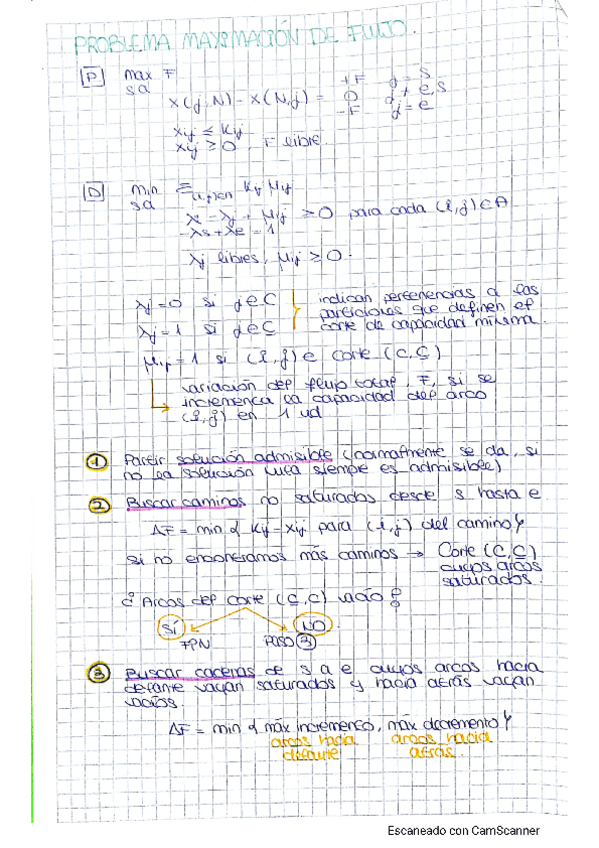 PROBLEMA MAXIMACIÓN DE FLUJO.
[P] max F
sa
x(j,N) - x(N,j) = +F j = s
0 j ≠ e,s
-F j = e
xij ≤ Kij
xij ≥ 0, F libre.
[D] min Σ(i,j)∈A Kij μij
sa
λi - λj + μij ≥ 0 para cada (i,j)∈A
-λs + λe = 1
λj libres, μij ≥ 0.
λj = 0 si j∈C
λj = 1 si j∈C̄
indican pertenencias a las
particiones que definen el
corte de capacidad mínima.
μij = 1 si (i,j) ∈ corte (C,C̄)
variación del flujo total, F, si se
incrementa la capacidad del arco
(i,j) en 1 ud
① Partir solución admisible (normalmente se da, si
no la solución nula siempre es admisible)
② Buscar caminos no saturados desde s hasta e
ΔF = min { Kij - xij para (i,j) del camino }
si no encontramos más caminos → Corte (C,C̄)
cuyos arcos
saturados.
¿Arcos del corte (C̄,C) vacío?
SÍ NO
FPN PASO ③
③ Buscar cadenas de s a e cuyos arcos hacia
delante vayan saturados y hacia atrás vayan
vacíos.
ΔF = min { máx incremento, máx decremento }
arcos hacia arcos hacia
delante atrás.
Escaneado con CamScanner